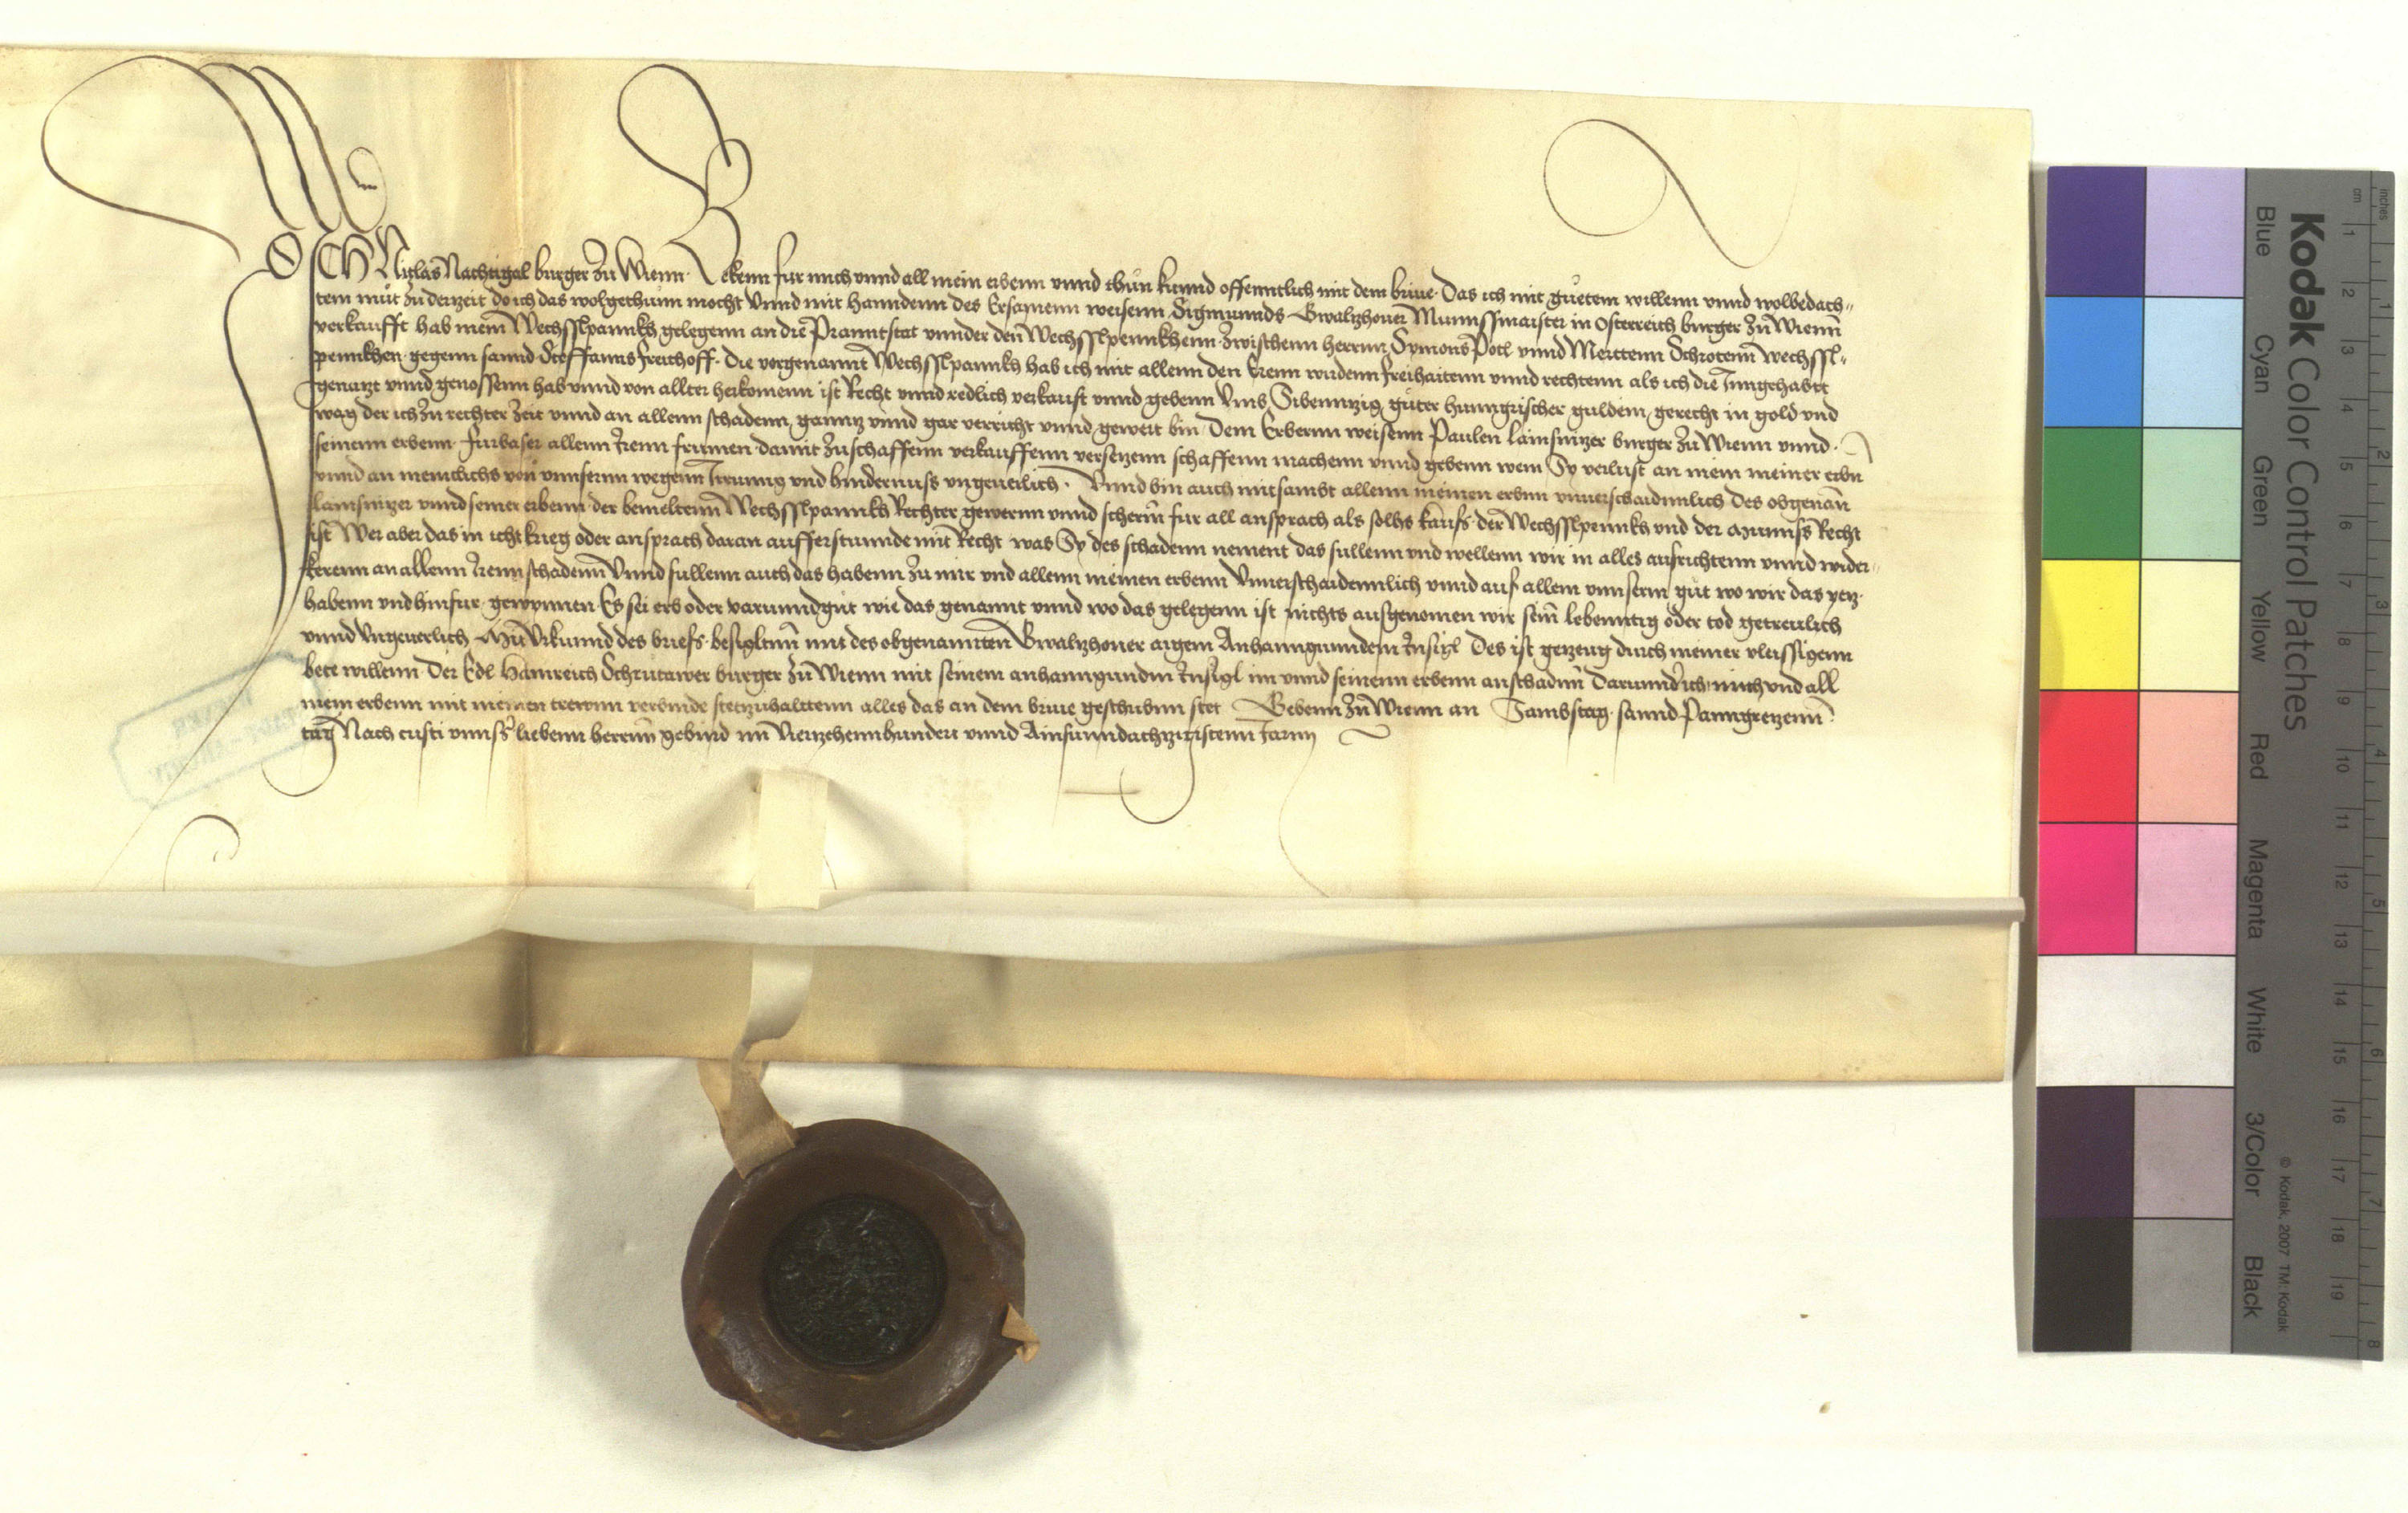 ICH Niclas Nachtigal burger zu Wienn. Bekenn fur mich vnnd all mein erbenn vnnd thun kunnd offenntlich mit dem brieue. Das ich mit guetem willenn vnnd wolbedach-
tem mut zu derzeit do ich das wolgethun mocht Vnnd mit hanndenn des Ersamenn weisenn Sigmunnds Gwaltzhouer Munnssmaister in Osterreich burger zu Wienn
verkaufft hab mein Wechsslpannkh gelegenn an die Pranntstat vnnder den Wechsslpennkhenn. Zwischenn herrnn Symons Potl vnnd Merttenn Schrotenn wechssl-
pennkhen gegenn sannd Steffanns freithoff. Die vorgenannt Wechsslpannkh hab ich mit allenn den Erenn wirdenn freihaitenn vnnd rechtenn als ich die Inngehabt
genutzt vnnd genossenn hab vnnd von allter herkomenn ist Recht vnnd redlich verkauft vnnd gebenn Vmb Sibenntzig guter hunngrischer guldein gerecht in gold vnd
wag der ich zu rechter zeit vnnd an allenn schadenn ganntz vnnd gar verricht vnnd gewert bin Dem Erbernn weisenn Paulen Lainsnitzer burger zu Wienn vnnd
seinenn erbenn furbaser allenn Irenn frumen damit zuschaffenn verkauffenn versetzenn schaffenn machenn vnnd gebenn wem Sy verlust an mein meiner erbn
vnnd an mennklichs von vnnsernn wegenn Irrung vnd hindernuss vngeuerlich. Vnnd bin auch mitsambt allenn meinen erbnn vnuerschaidennlich des obgenan
Lainsnitzer vnnd seiner erbenn der bemeltenn Wechsslpannkh Rechter gewernn vnnd scherm fur all ansprach als solhs kaufs der Wechsslpennkh vnd der Munnss Recht
ist Wer aber das in icht krieg oder ansprach daran aufferstuennde mit Recht was Sy des schadenn nement das sullenn vnd wellenn wir in alles aufrichtenn vnnd wider-
kerenn an allenn Irenn schadenn Vnnd sullenn auch das habenn zu mir vnd allenn meinen erbenn Vnuerschaidennlich vnnd auf allem vnnserm gut wo wir das yetz
habenn vnd hinfur gewynnen Es sei erb oder varunndgut wie das genannt vnnd wo das gelegenn ist nichts ausgenomen wir sein lebenntig oder tod getreulich
vnnd Vngeuerlich Mit Vrkunnd des briefs besigltnn mit des obgenannten Gwaltzhouer aigem Anhanngunndem Insigl Des ist getzeug durch meiner vleissigenn
bete willenn Der Edl Hainreich Schrutawer burger zu Wienn mit seinem anhanngundm Insigl im vnnd seinenn erbenn anschadnn Darunnder ich mich vnd all
mein erbenn mit meinen trewnn verbinde stetzuhalttenn alles das an dem brieue geschribnn stet Gebenn zu Wienn an Sambstag sannd Panngretzenn
tag Nach cristi vnnsers liebenn herrenn geburd im Viertzehennhundert vnnd Ainsunndachtzigistenn Jarnn
Kodak Color Control Patches
Blue Cyan Green Yellow Red Magenta White 3/Color Black
© Kodak, 2007 TM: Kodak
cm 1 2 3 4 5 6 7 8 9 10 11 12 13 14 15 16 17 18 19
inches 1 2 3 4 5 6 7 8